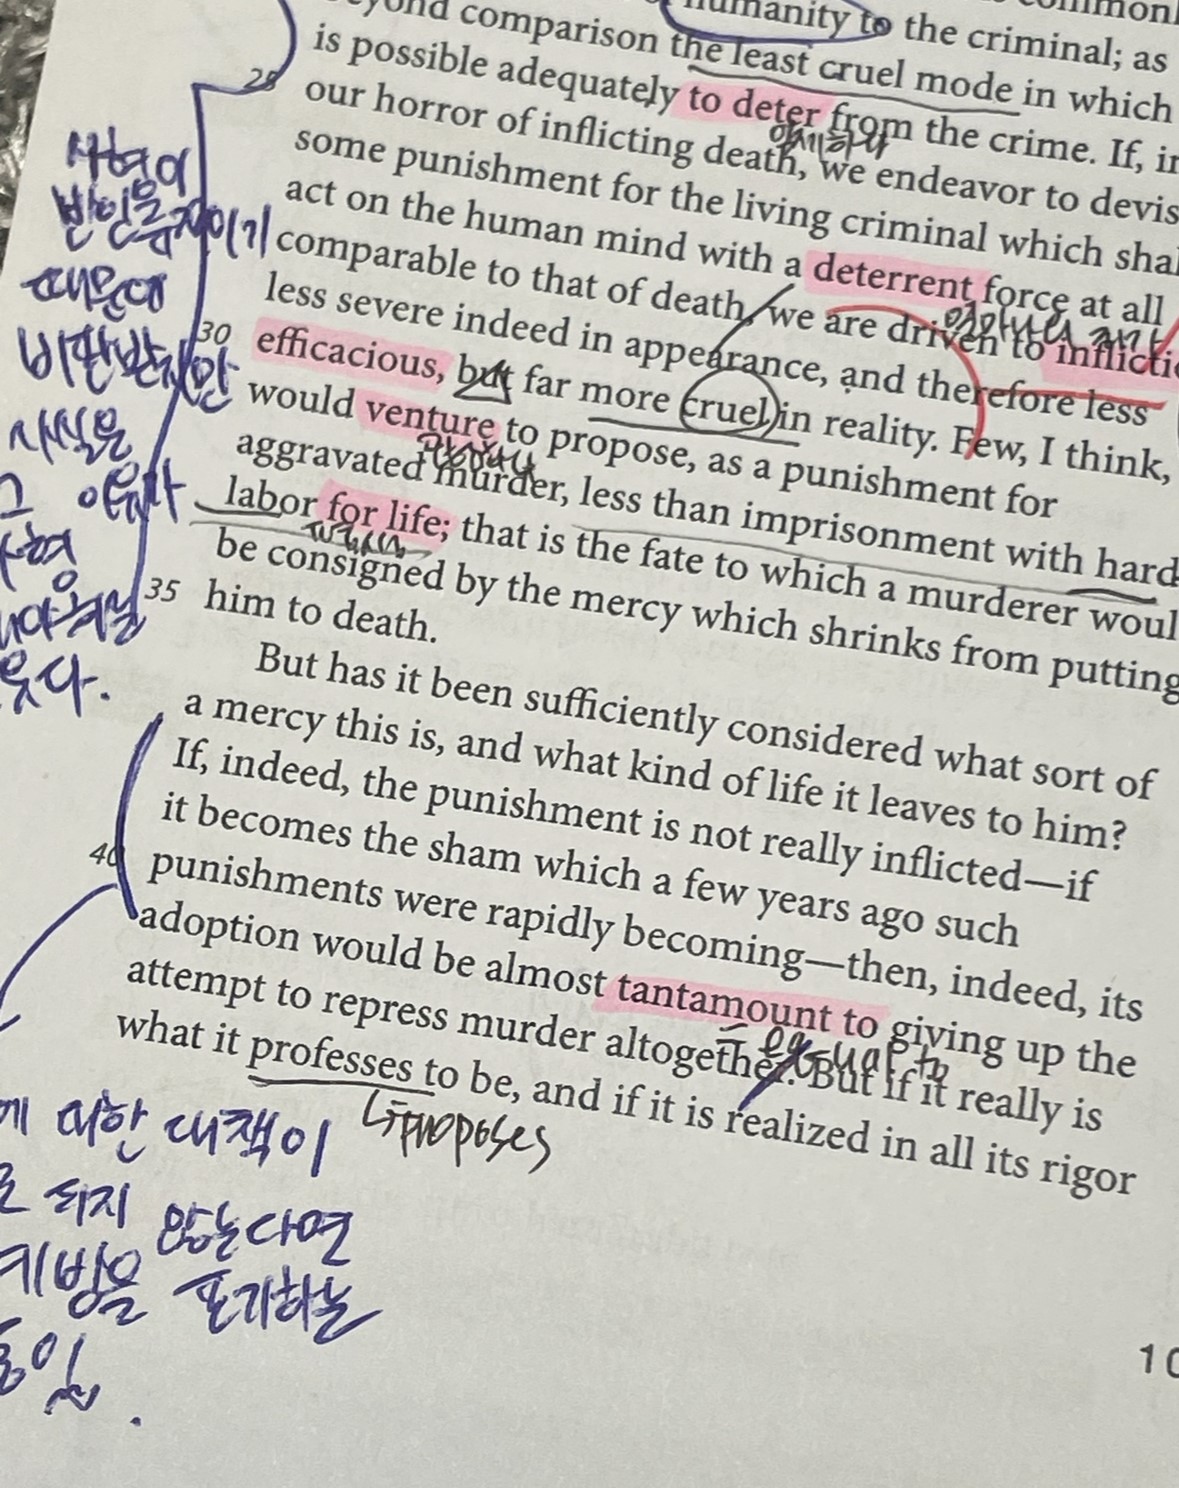 beyond comparison the least cruel mode in which
humanity to the criminal; as
is possible adequately to deter from the crime. If, in
our horror of inflicting death, we endeavor to devis
some punishment for the living criminal which shal
act on the human mind with a deterrent force at all
comparable to that of death, we are driven to inflicti
less severe indeed in appearance, and therefore less
efficacious, but far more cruel in reality. Few, I think,
would venture to propose, as a punishment for
aggravated murder, less than imprisonment with hard
labor for life; that is the fate to which a murderer woul
be consigned by the mercy which shrinks from putting
him to death.
But has it been sufficiently considered what sort of
a mercy this is, and what kind of life it leaves to him?
If, indeed, the punishment is not really inflicted—if
it becomes the sham which a few years ago such
punishments were rapidly becoming—then, indeed, its
adoption would be almost tantamount to giving up the
attempt to repress murder altogether. But if it really is
what it professes to be, and if it is realized in all its rigor
25
30
35
40
억제하다
사형이
때문에
비판받지만
사실은
그
사형
에 대한 대책이
로 되지 않는다면
포기하는
동일.
↳proposes
10